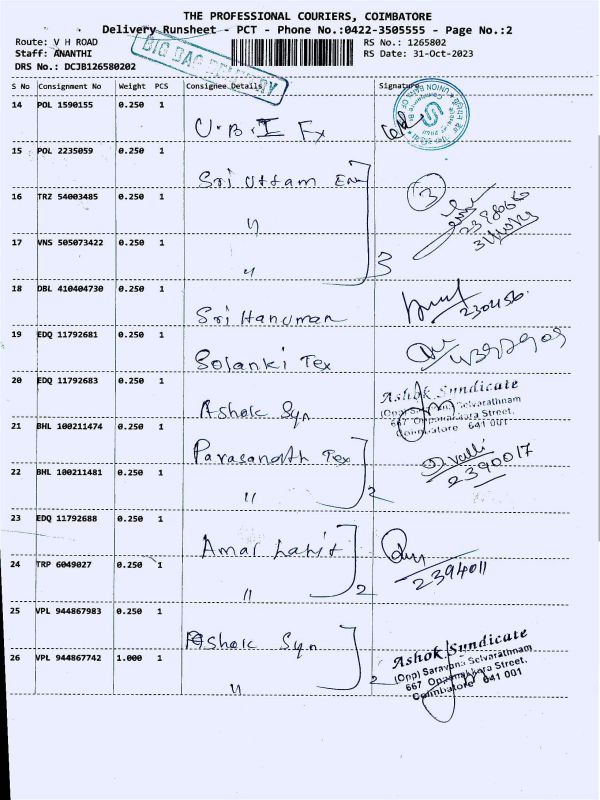 THE PROFESSIONAL COURIERS, COIMBATORE
Delivery Runsheet - PCT - Phone No.:0422-3505555 - Page No.:2
Route: V H ROAD
RS No.: 1265802
Staff: ANANTHI
RS Date: 31-Oct-2023
DRS No.: DCJB126580202
BIG BAG DELIVERY
S No Consignment No Weight PCS Consignee Details Signature
14 POL 1590155 0.250 1 U.B.I Ex
UNION BANK OF
15 POL 2235059 0.250 1 Sri Uttam Em
16 TRZ 54003485 0.250 1 〃 3
17 VNS 505073422 0.250 1 〃 3
18 DBL 410404730 0.250 1 Sri Hanuman 230456
19 EDQ 11792681 0.250 1 Solanki Tex
20 EDQ 11792683 0.250 1 Ashok Syn
Ashok Syndicate
667 Oppanakkara Street,
Coimbatore 641 001
21 BHL 100211474 0.250 1 Parasanath Tex valli
2390017
22 BHL 100211481 0.250 1 〃 2
23 EDQ 11792688 0.250 1 Amar Lahit
24 TRP 6049027 0.250 1 〃 2 2394011
25 VPL 944867983 0.250 1 Ashok Syn
26 VPL 944867742 1.000 1 〃 2
Ashok Syndicate
(Opp) Saravana Selvarathnam
667 Oppanakkara Street,
Coimbatore 641 001